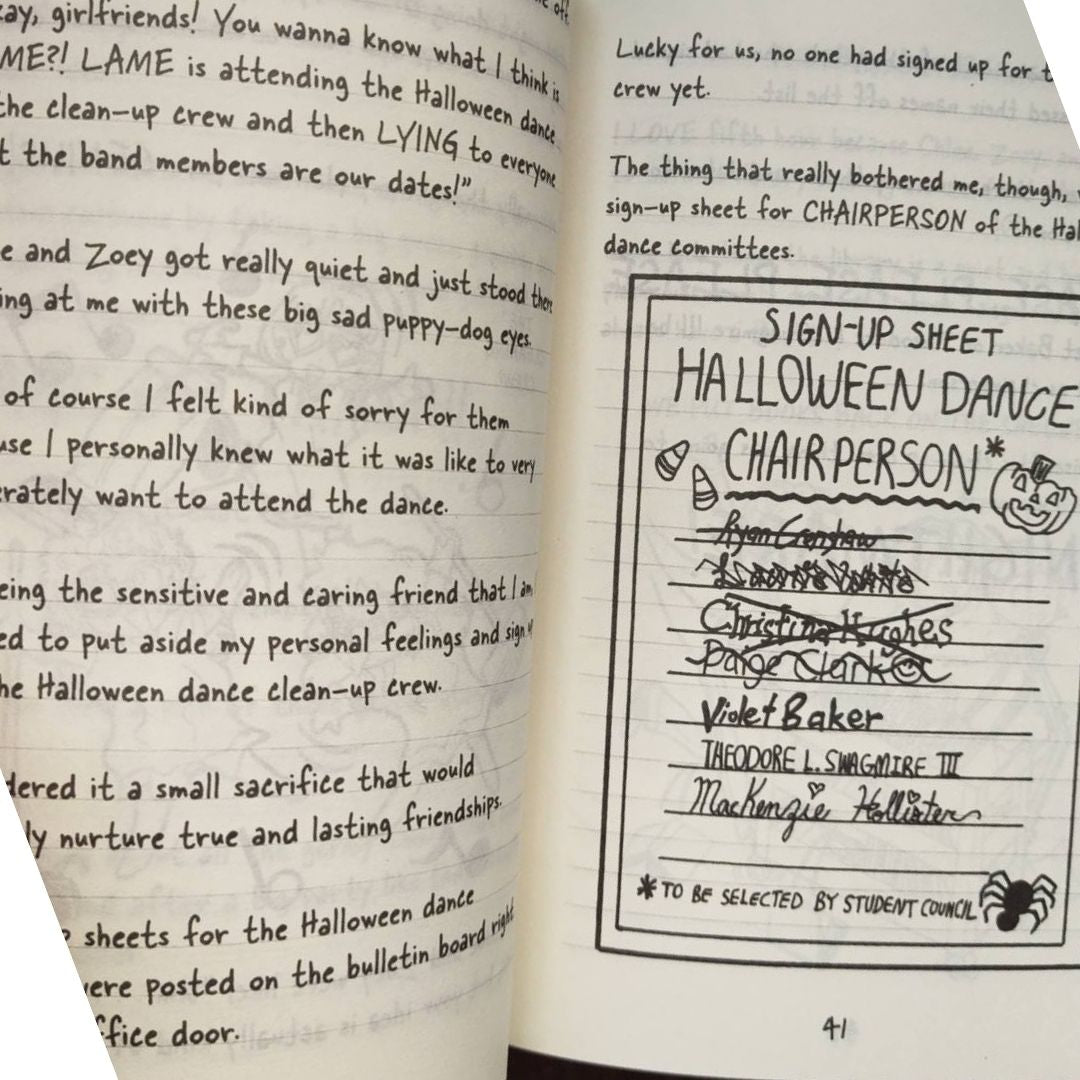 girlfriends! You wanna know what I think is
LAME is attending the Halloween dance
the clean-up crew and then LYING to everyone
the band members are our dates!"
and Zoey got really quiet and just stood there
at me with these big sad puppy-dog eyes.
of course I felt kind of sorry for them
I personally knew what it was like to very
want to attend the dance.
the sensitive and caring friend that I am
to put aside my personal feelings and sign up
Halloween dance clean-up crew.
it a small sacrifice that would
nurture true and lasting friendships.
sheets for the Halloween dance
were posted on the bulletin board right
door.
Lucky for us, no one had signed up for
crew yet.
The thing that really bothered me, though,
sign-up sheet for CHAIRPERSON of the
dance committees.
SIGN-UP SHEET
HALLOWEEN DANCE
CHAIRPERSON*
Ryan Crenshaw
Christina Hughes
Paige Clark
Violet Baker
THEODORE L. SWAGMIRE III
MacKenzie Hollister
*TO BE SELECTED BY STUDENT COUNCIL
41